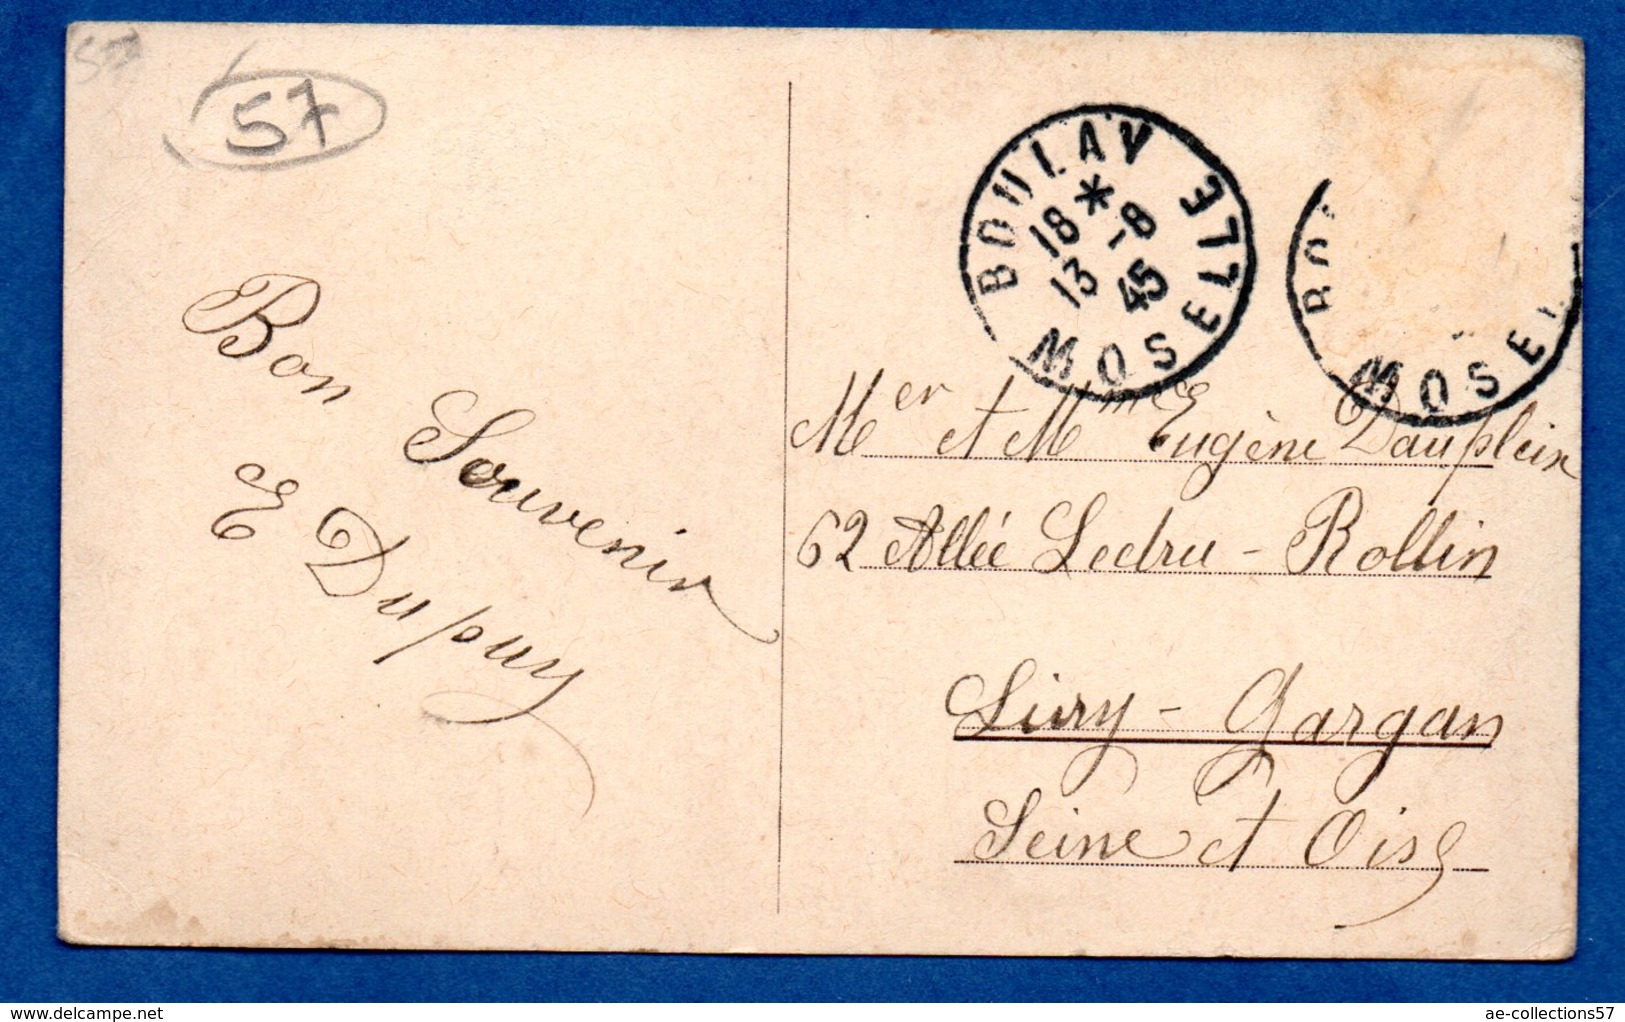 57
Bon
Souvenir
E Dupuy
BOULAY MOSELLE
*
18 - 8
13 45
MOSEL
Mer et Mme Eugène Dauplein
62 Allée Ledru-Rollin
Livry-Gargan
Seine et Oise
delcampe.net
ae-collections57